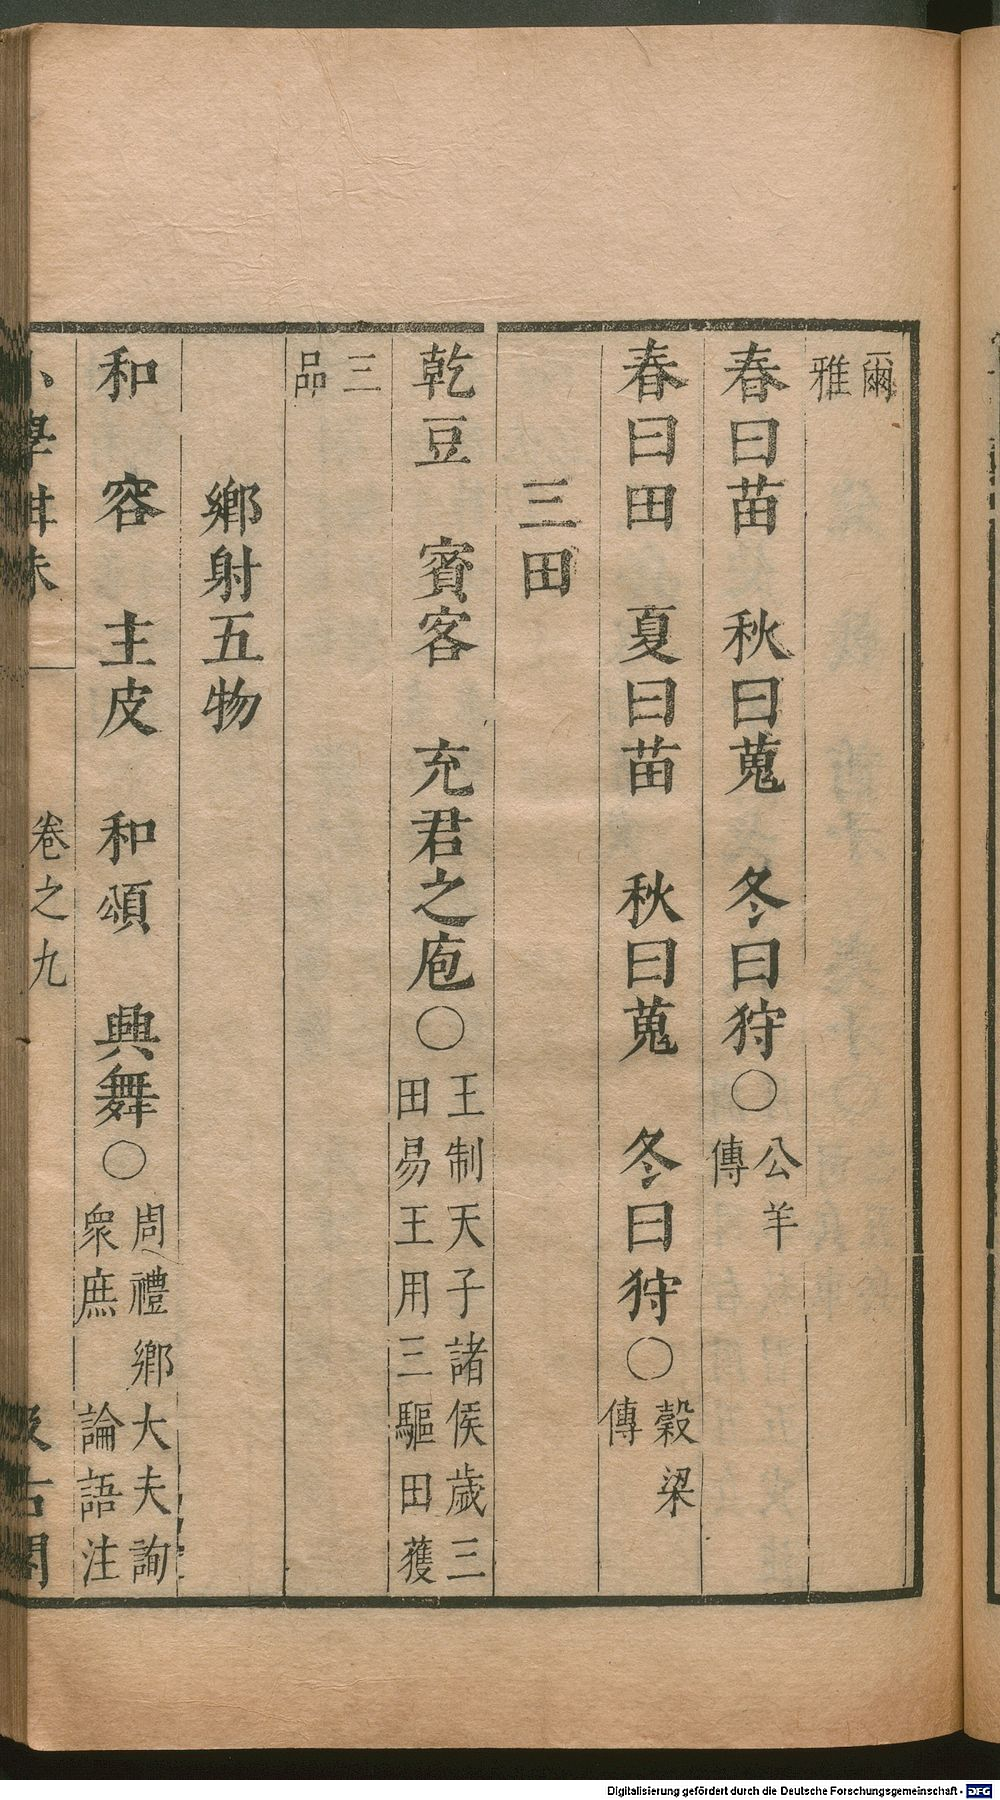 爾
雅
春曰苗　秋曰蒐　冬曰狩○公羊
傳
春曰田　夏曰苗　秋曰蒐　冬曰狩○穀梁
傳
三田
乾豆　賓客　充君之庖○王制天子諸侯歲三
田易王用三驅田獲
三
品
鄉射五物
和　容　主皮　和頌　興舞○周禮鄉大夫詢
衆庶　論語注
小學紺珠　卷之九　汲古閣
Digitalisierung gefördert durch die Deutsche Forschungsgemeinschaft - DFG